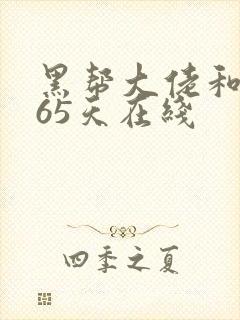 黑帮大佬和
65天在线
四季之夏